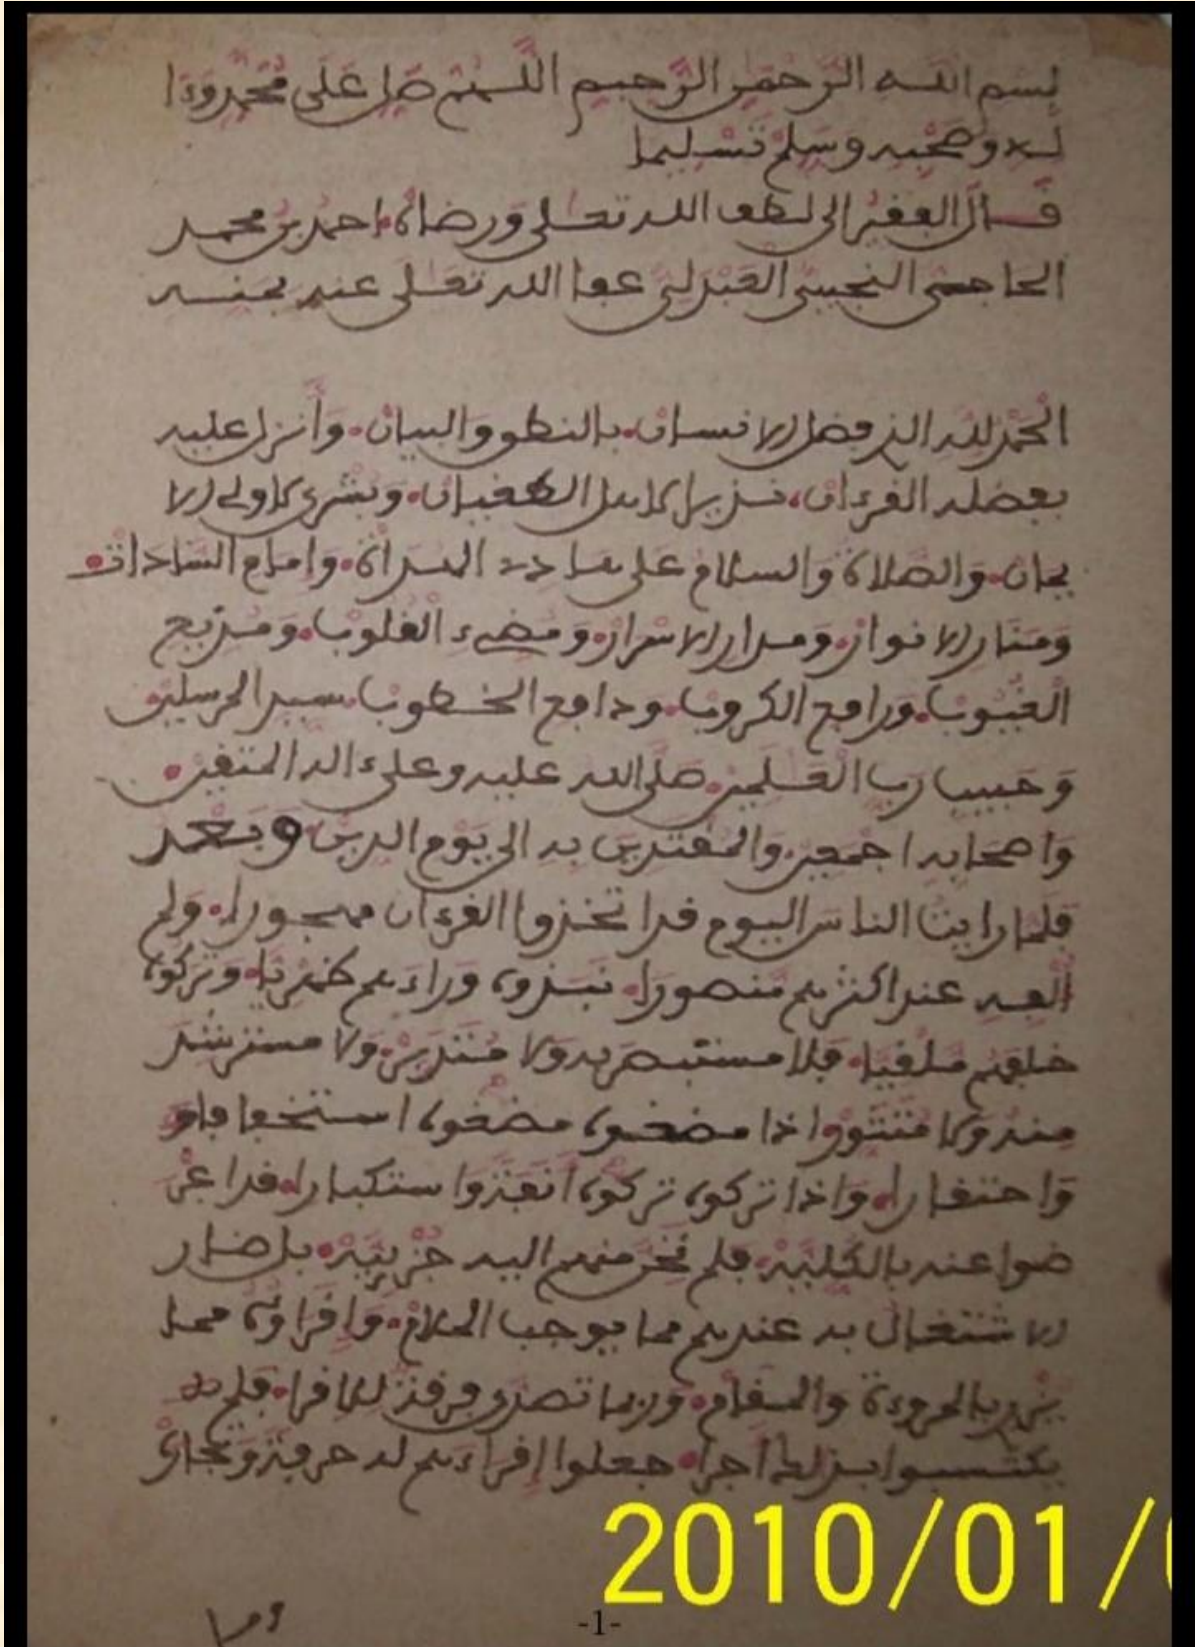 بِسْمِ اللَّهِ الرَّحْمَنِ الرَّحِيمِ اللَّهُمَّ صَلِّ عَلَى مُحَمَّدٍ وَءَا
لِهِ وَصَحْبِهِ وَسَلِّمْ تَسْلِيما
قال الفقير الى لطف الله تعلى ورضاه احمد بن محمد
الحاجي عفا الله تعلى عنه بمنه
الحمد لله الذي فضل الانسان بالنطق والبيان وأنزل عليه
بفضله القرءان نذيرا لاهل الطغيان وبشرى لاولي الا
يمان والصلاة والسلام على وامام السادات
ومنار الانوار ومدار الاسرار ومضيء القلوب ومزيح
الغيوب ورافع الكروب ودافع الخطوب سيد المرسلين
وحبيب رب العلمين صلى الله عليه وعلى اله المتقين
واصحابه اجمعين والمقتدين به الى يوم الدين وبعد
فلما رايت الناس اليوم قد اتخذوا القرءان مهجورا ولم
الفه عند اكثرهم منصورا نبذوه وراءهم ظهريا وتركوه
خلفهم ملقيا فلا مستبصر به ولا ولا مسترشد
منه ولا واذا استخفافا
واحتقارا واذا تركوه تركوه واستكبارا قد اعر
ضوا عنه بالكلية فلم منهم اليه جزيية بل صار
الاشتغال به عندهم مما يوجب الملام واقراؤه مما
يزري بالمروءة والمقام وربما تصدى فرقة للاقرا فلم
يكتسبوا اجرا جعلوا إقراءهم له حرفة
2010/01/
-1-